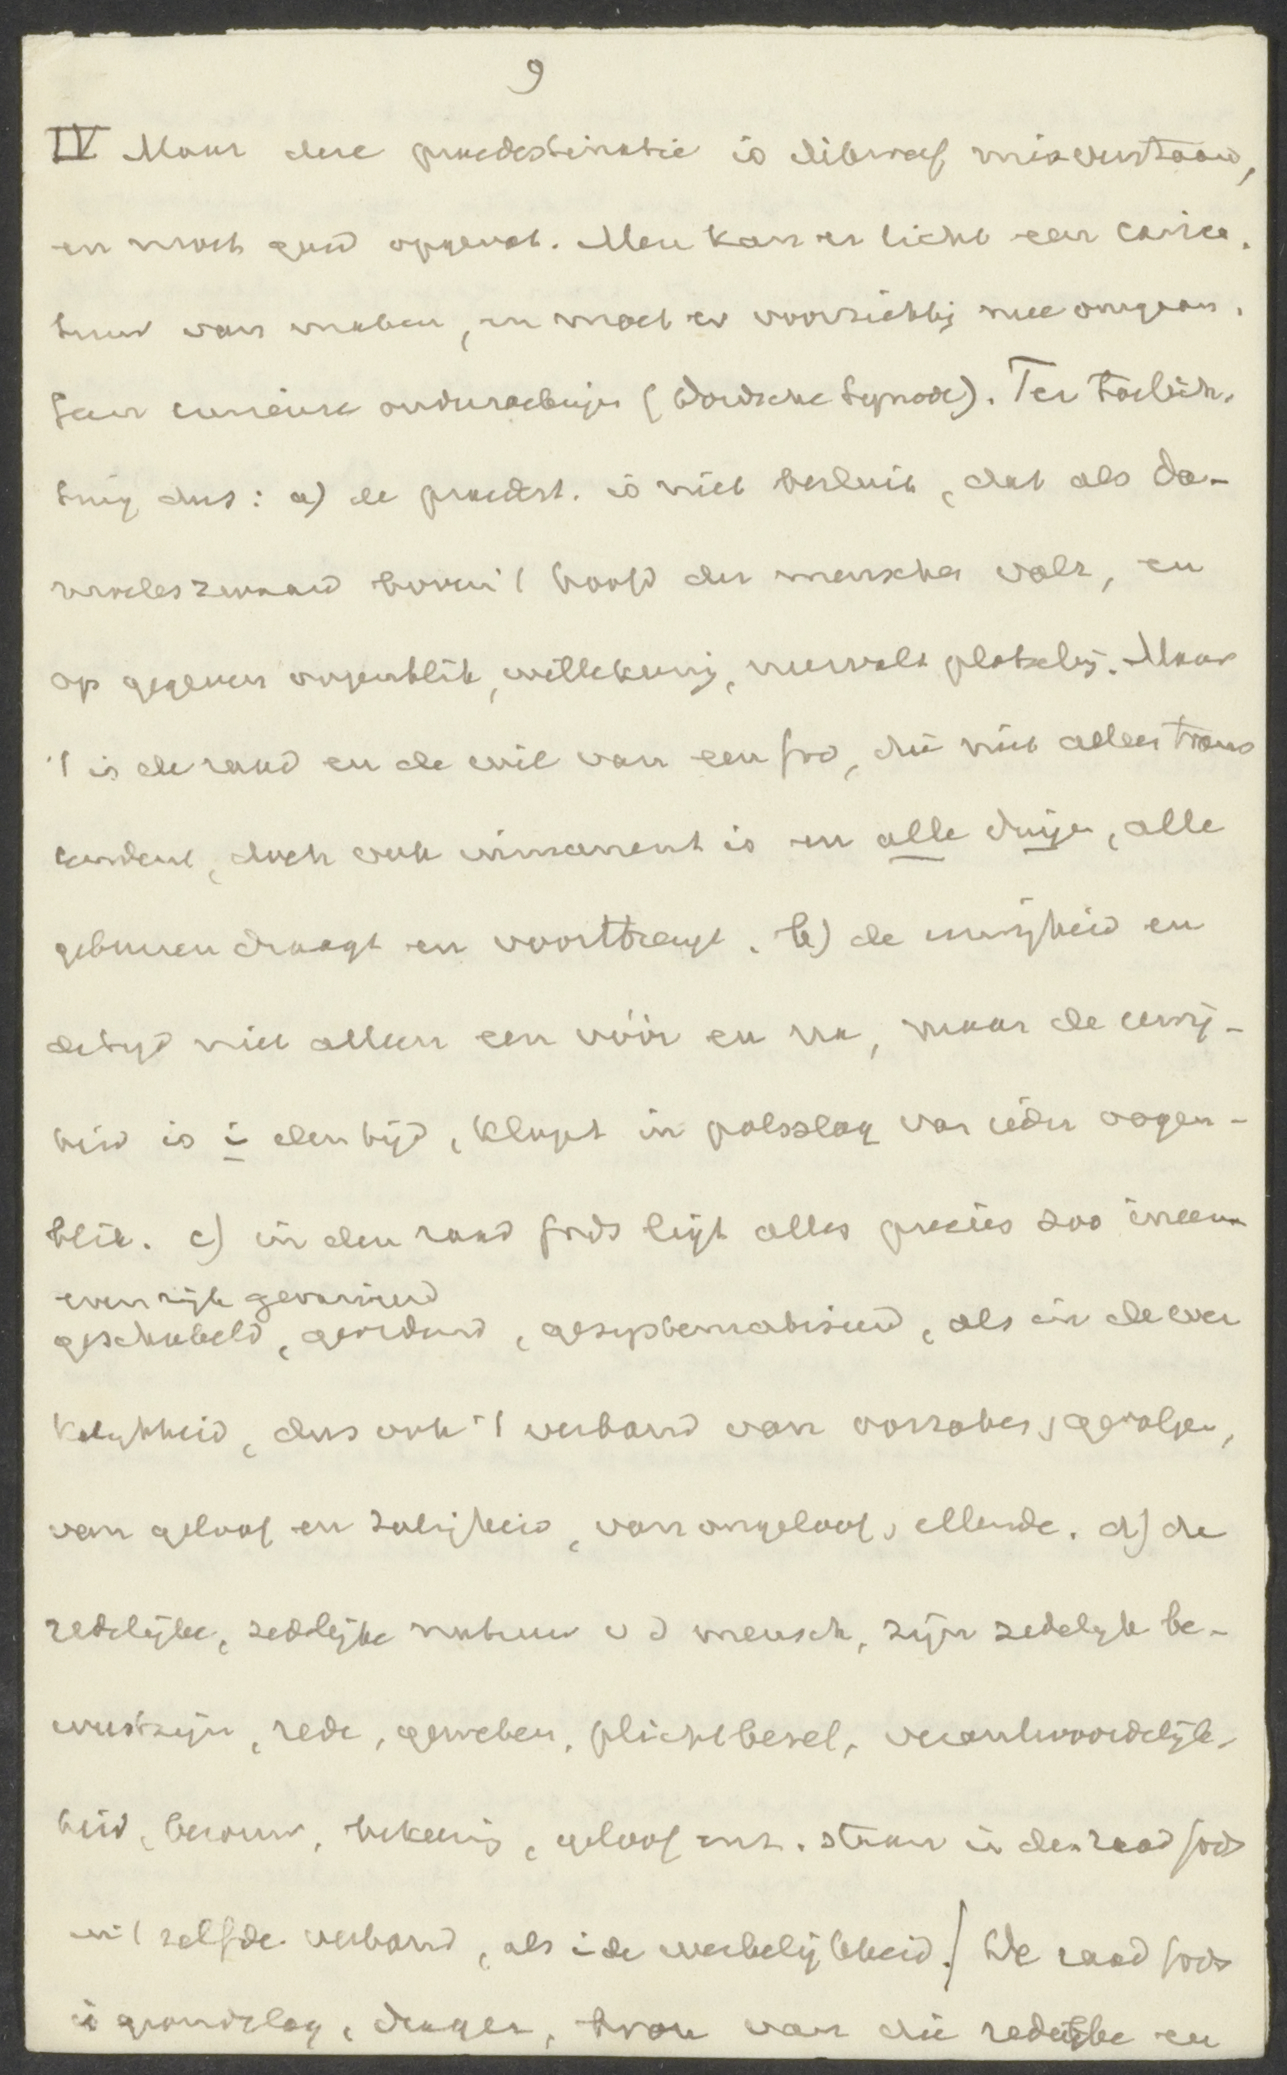 9
IV Maar deze praedestinatie is dikwerf misverstaan,
en moet goed opgevat. Men kan er licht een carica-
tuur van maken, en moet er voorzichtig mee omgaan.
Geen curieuse onderzoekingen (Dordsche Synode). Ter toelich-
ting dus: a) de praedest. is niet besluit, dat als Da-
mocleszwaard boven 't hoofd der menschen valt, en
op gegeven oogenblik, willekeurig, neervalt plotseling. Maar
't is de raad en de wil van een God, die niet alleen trans
cendent, doch ook immanent is in alle dingen, alle
gebeuren draagt en voortbrengt. b) de eeuwigheid en
de tijd niet alleen een vóór en na, maar de eeuwig-
heid is i den tijd, klopt in polsslag van ieder oogen-
blik. c) in den raad Gods ligt alles precies zoo ineen
even rijk gevarieerd
geschakeld, geordend, gesystematiseerd, als in de wer
kelijkheid, dus ook 't verband van oorzaken, gevolgen,
van geloof en zaligheid, van ongeloof, ellende. d) de
redelijke, zedelijke natuur v d mensch, zijn zedelijk be-
wustzijn, rede, geweten, plichtbesef, verantwoordelijk-
heid, berouw, bekeering, geloof enz. staan in den raad Gods
in 't zelfde verband, als i de werkelijkheid. / De raad Gods
is grondslag, drager, bron van die redelijke en